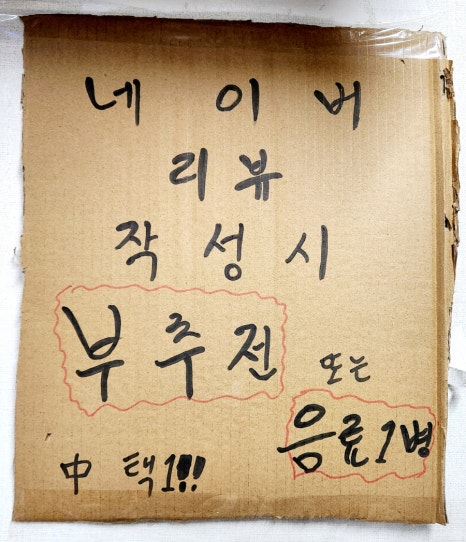 네이버
리뷰
작성시
부추전 또는
음료1병
中 택1!!!